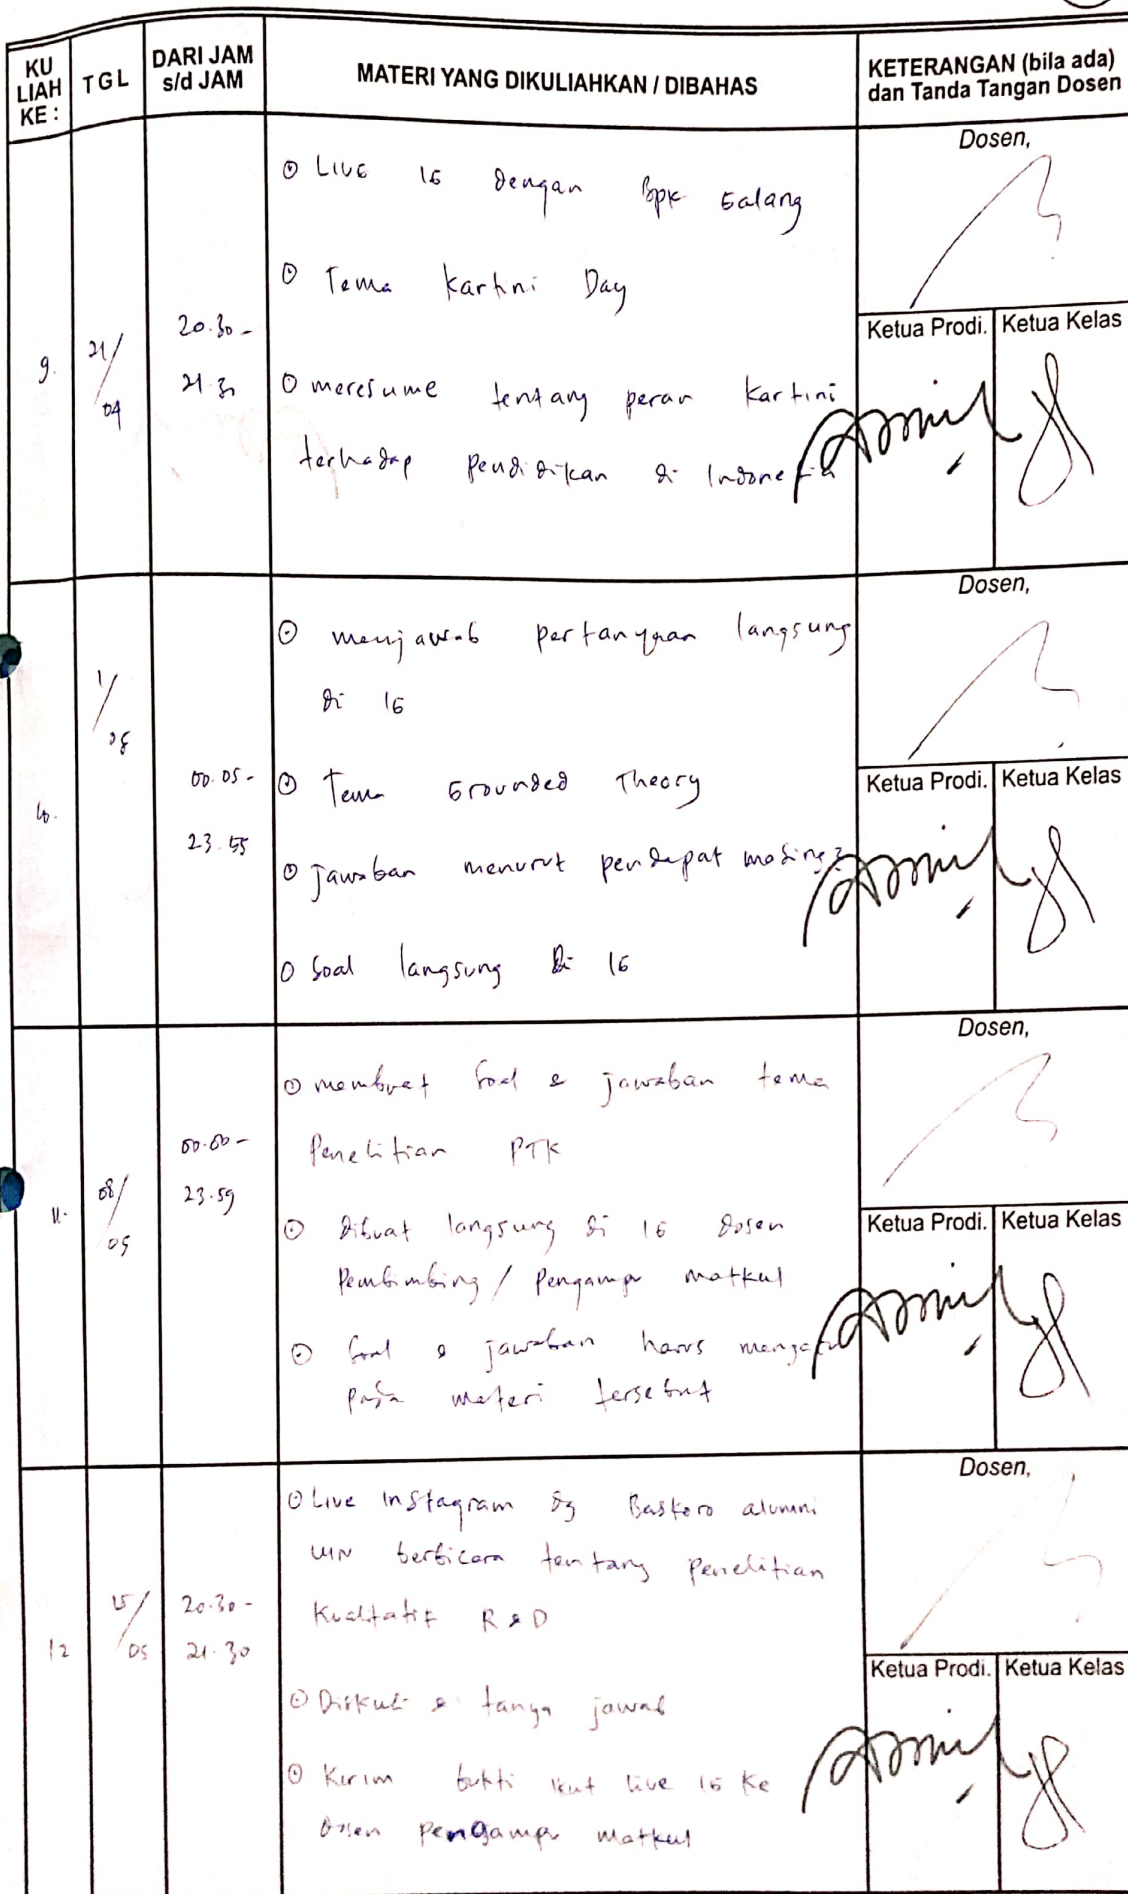 KU LIAH KE :
TGL
DARI JAM s/d JAM
MATERI YANG DIKULIAHKAN / DIBAHAS
KETERANGAN (bila ada) dan Tanda Tangan Dosen
9.
21/04
20.30 -
21.30
⊙ Live IG dengan Bpk Galang
⊙ Tema Kartini Day
⊙ meresume tentang peran Kartini
terhadap Pendidikan di Indonesia
Dosen,
Ketua Prodi.
Ketua Kelas
10.
1/05
00.05 -
23.55
⊙ menjawab pertanyaan langsung
di IG
⊙ Tema Grounded Theory
⊙ jawaban menurut pendapat masing2
⊙ Soal langsung di IG
Dosen,
Ketua Prodi.
Ketua Kelas
11.
08/05
00.00 -
23.59
⊙ membuat soal & jawaban tema
Penelitian PTK
⊙ dibuat langsung di IG dosen
Pembimbing / Pengampu matkul
⊙ Soal & jawaban harus
pada materi tersebut
Dosen,
Ketua Prodi.
Ketua Kelas
12
15/05
20.30 -
21.30
⊙ Live Instagram dg Baskoro alumni
UIN berbicara tentang Penelitian
Kualitatif R&D
⊙ Diskusi & tanya jawab
⊙ Kirim bukti ikut live IG ke
dosen Pengampu matkul
Dosen,
Ketua Prodi.
Ketua Kelas